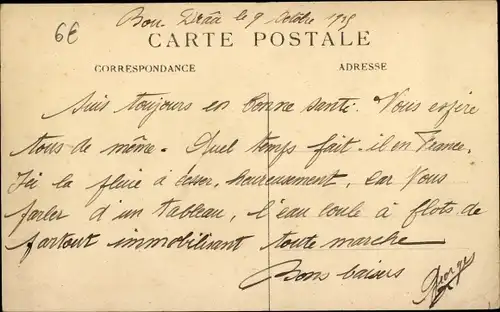 6€
Bou Denib le 9 Octobre 1925
CARTE POSTALE
CORRESPONDANCE
ADRESSE
Suis toujours en bonne santé. Vous espère
tous de même. Quel temps fait-il en France.
Ici la pluie à cesser, heureusement, Car Vous
parler d'un tableau, l'eau coule à flots de
partout immobilisant toute marche
Bons baisers
Georges